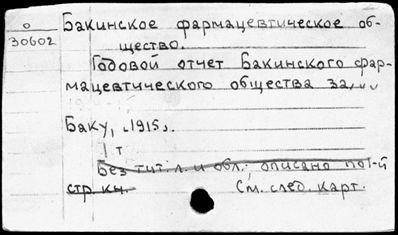 о
30602
Бакинское фармацевтическое об-
щество.
Годовой отчет Бакинского фар-
мацевтического общества за,..
Баку, „1915„.
1 т
Без тит. л. и обл.; описано по 1-й
стр. кн.
См. след. карт.